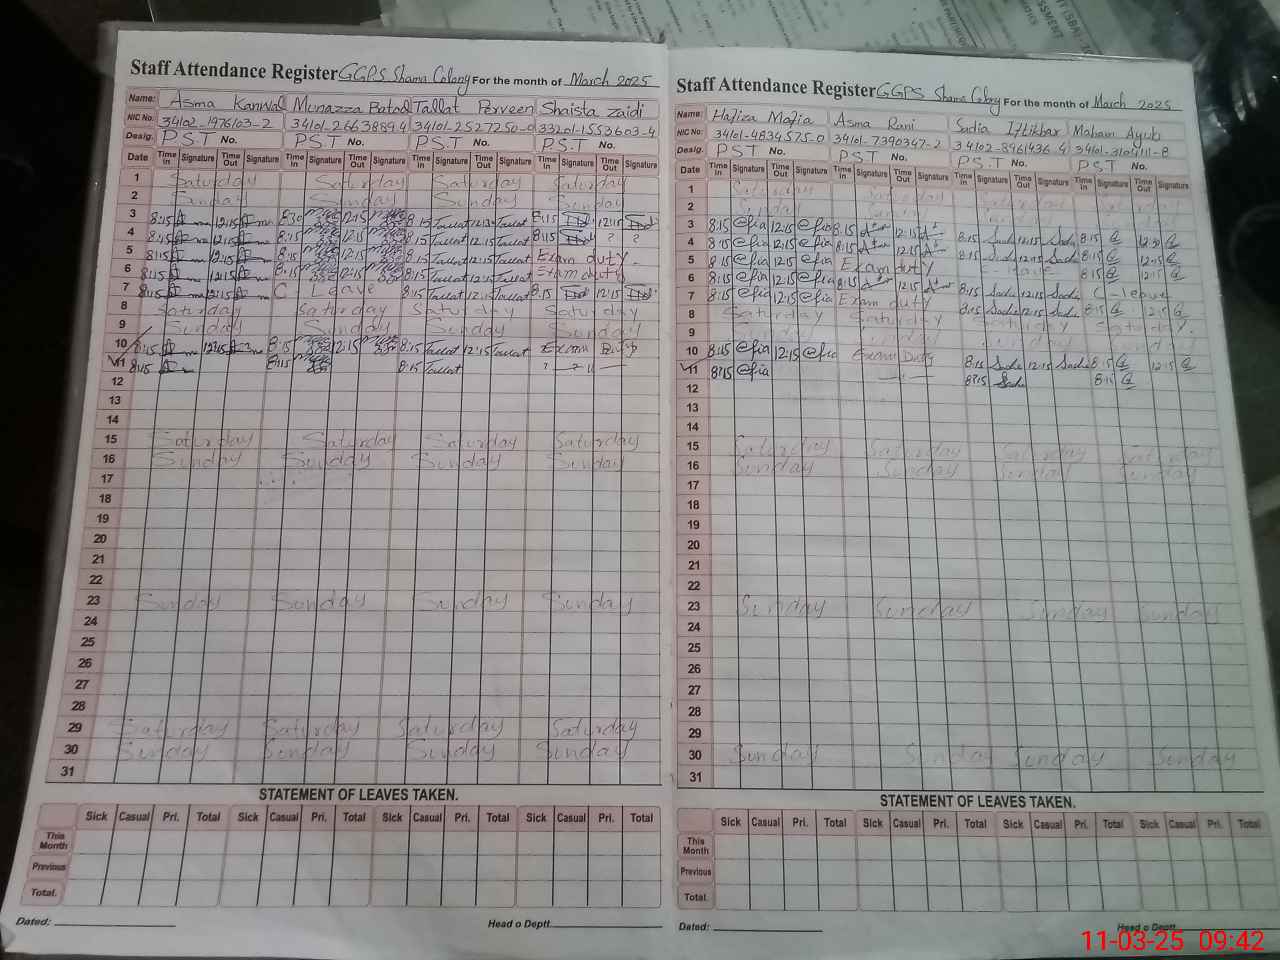 Staff Attendance Register GGPS Shama Colony For the month of March 2025
Name: Asma Kanwal Munazza Batool Tallat Perveen Shaista Zaidi
NIC No. 34102-1976103-2 34101-2663889-4 34101-2527250-0 33201-1553603-4
Desig. P.S.T No. P.S.T No. P.S.T No. P.S.T No.
Date Time In Signature Time Out Signature Time In Signature Time Out Signature Time In Signature Time Out Signature Time In Signature Time Out Signature
1 Saturday Saturday Saturday Saturday
2 Sunday Sunday Sunday Sunday
3 8:15 12:15 8:30 12:15 8:15 Tallat Tallat 8:15 12:15
4 8:15 12:15 8:15 12:15 8:15 Tallat 12:15 Tallat 8:15 ? ?
5 8:15 12:15 8:15 12:15 8:15 Tallat 12:15 Tallat Exam duty.
6 8:15 12:15 8:15 12:15 8:15 Tallat 12:15 Tallat Exam duty
7 8:15 12:15 C Leave 8:15 Tallat 12:15 Tallat 8:15 12:15
8 Saturday Saturday Saturday Saturday
9 Sunday Sunday Sunday Sunday
10 8:15 12:15 8:15 12:15 8:15 Tallat 12:15 Tallat Exam Duty
11 8:15 8:15 8:15 Tallat
12
13
14
15 Saturday Saturday Saturday Saturday
16 Sunday Sunday Sunday Sunday
17
18
19
20
21
22
23 Sunday Sunday Sunday Sunday
24
25
26
27
28
29 Saturday Saturday Saturday Saturday
30 Sunday Sunday Sunday Sunday
31
STATEMENT OF LEAVES TAKEN.
Sick Casual Pri. Total Sick Casual Pri. Total Sick Casual Pri. Total Sick Casual Pri. Total
This Month
Previous
Total.
Dated: Head o Deptt.
Staff Attendance Register GGPS Shama Colony For the month of March 2025
Name: Hafiza Mafia Asma Rani Sadia Iftikhar Maham Ayub
NIC No. 34101-4834575-0 34101-7390347-2 34102-8961436-4 34101-3104111-8
Desig. PST No. PST No. P.S.T No. PST No.
Date Time In Signature Time Out Signature Time In Signature Time Out Signature Time In Signature Time Out Signature Time In Signature Time Out Signature
1 Saturday Saturday
2 Sunday
3 8:15 @fia 12:15 @fia 8:15 12:15 8:15 Sadia 12:15 Sadia 8:15 12:30
4 8:15 @fia 12:15 @fia 8:15 12:15 8:15 Sadia 12:15 Sadia 8:15 12:15
5 8:15 @fia 12:15 @fia Exam duty Leave 8:15 12:15
6 8:15 @fia 12:15 @fia 8:15 12:15 8:15 Sadia 12:15 Sadia C-leave
7 8:15 @fia 12:15 @fia Exam duty 8:15 Sadia 12:15 Sadia 8:15 12:15
8 Saturday Saturday Saturday Saturday.
9 Sunday Sunday Sunday Sunday
10 8:15 @fia 12:15 @fia Exam Duty 8:15 Sadia 12:15 Sadia 8:15 12:15
11 8:15 @fia 8:15 Sadia 8:15
12
13
14
15 Saturday Saturday Saturday Saturday
16 Sunday Sunday Sunday Sunday
17
18
19
20
21
22
23 Sunday Sunday Sunday Sunday
24
25
26
27
28
29
30 Sunday Sunday Sunday Sunday
31
STATEMENT OF LEAVES TAKEN.
Sick Casual Pri. Total Sick Casual Pri. Total Sick Casual Pri. Total Sick Casual Pri. Total
This Month
Previous
Total.
Dated: Head o Deptt.
11-03-25 09:42